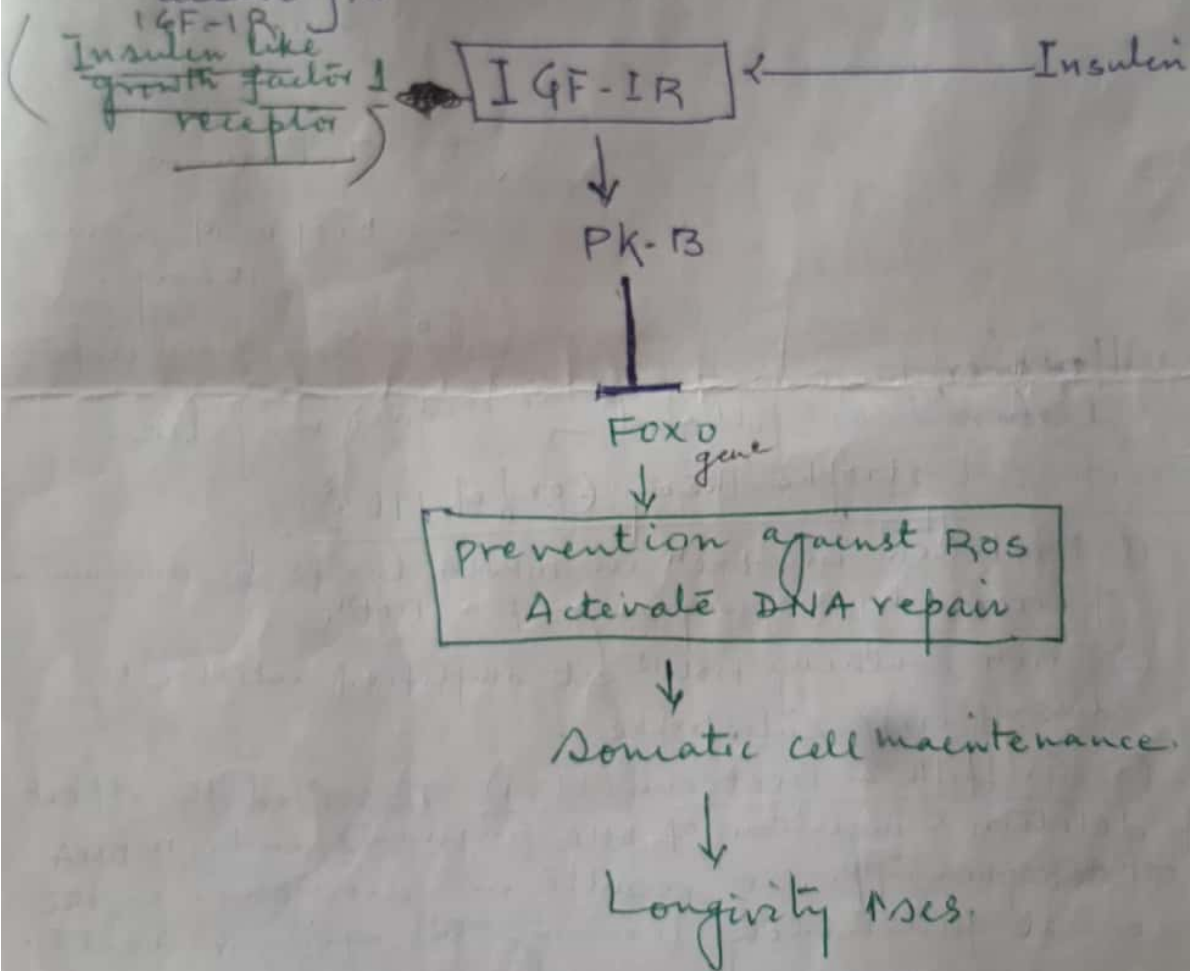 IGF-IR
(Insulin like
growth factor 1
receptor)
IGF-IR
Insulin
PK-B
Foxo
gene
prevention against ROS
Activate DNA repair
Somatic cell maintenance.
Longivity ↑ses.